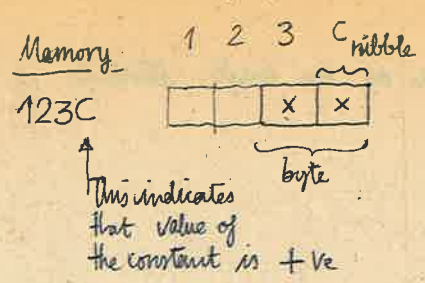 Memory 1 2 3 C
nibble
123C x x
byte
This indicates
that value of
the constant is +ve